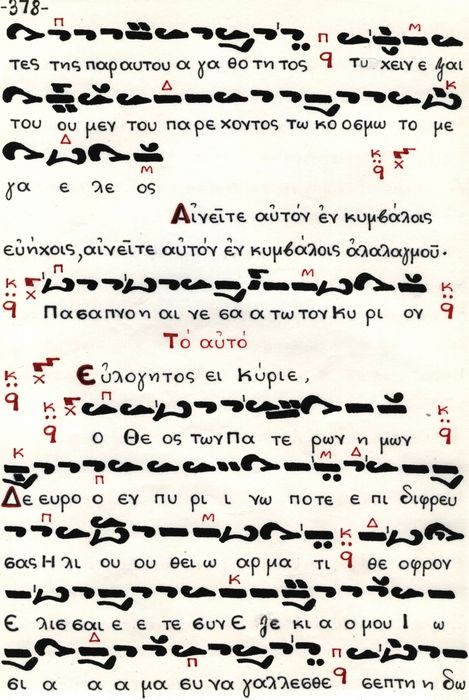 -378-
Π Μ
τες της παραυτου α γα θο τη τος Π q τυ χειν ε ξαι
Δ Κ
του ου μεν του πα ρε χοντος τω κο οσμω το με
Δ Μ
γα ε λε ος
Αἰνεῖτε αὐτόν ἐν κυμβάλοις
εὐήχοις, αἰνεῖτε αὐτόν ἐν κυμβάλοις ἀλαλαγμοῦ.
Π Μ
Πασα πνο η αι νε σα α τω τον Κυ ρι ον
Τό αὐτό
Εὐλογητος ει Κύριε,
Π
ο Θε ος των Πα τε ρων η μων
Κ Μ Δ
Δε ευρο ο εν πυ ρι ι νω ποτε ε πι διφρευ
Π Μ Δ
σας Η λι ου ου θει ω αρ μα τι θε οφρον
Κ
Ε λισ σαι ε ε τε συν Ε ζε κι α ο μου Ι ω
Δ Π
σι α α α μα συ να γαλλεσθε σεπτη η δω